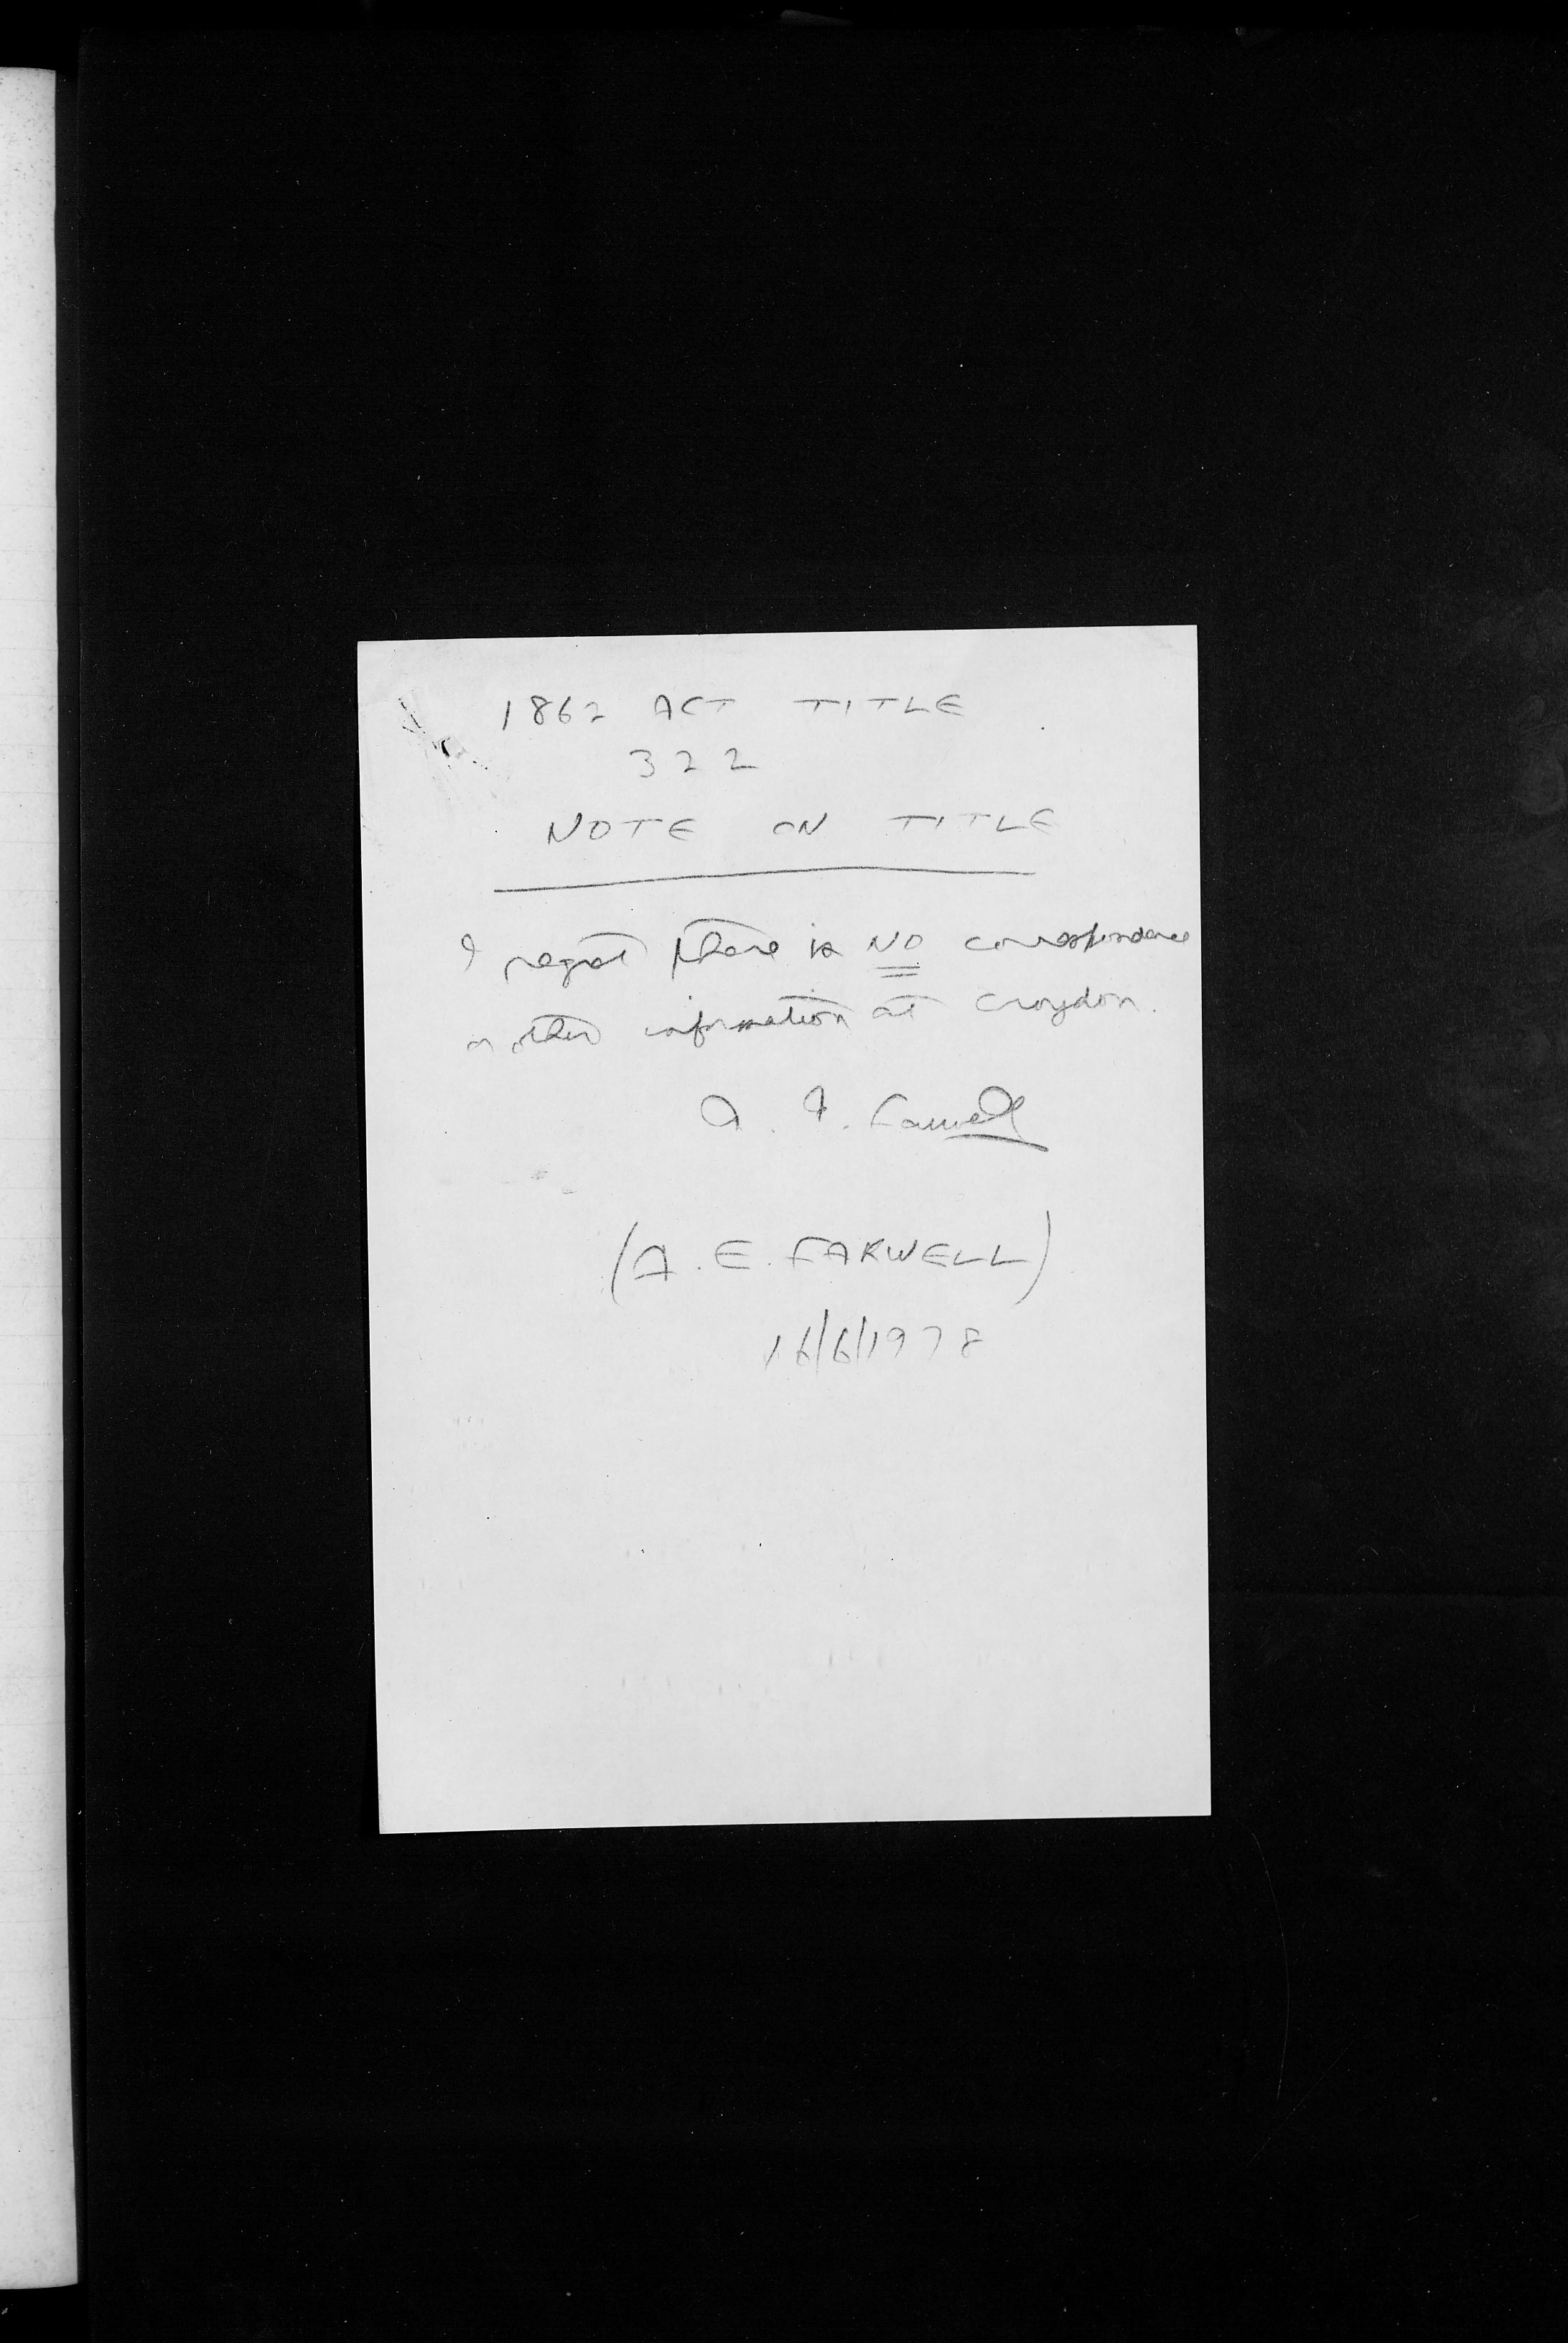 1862 ACT TITLE
322
NOTE ON TITLE
I regret there is NO correspondence
or other information at Croydon.
A. E. Farwell
(A. E. FARWELL)
16/6/1978